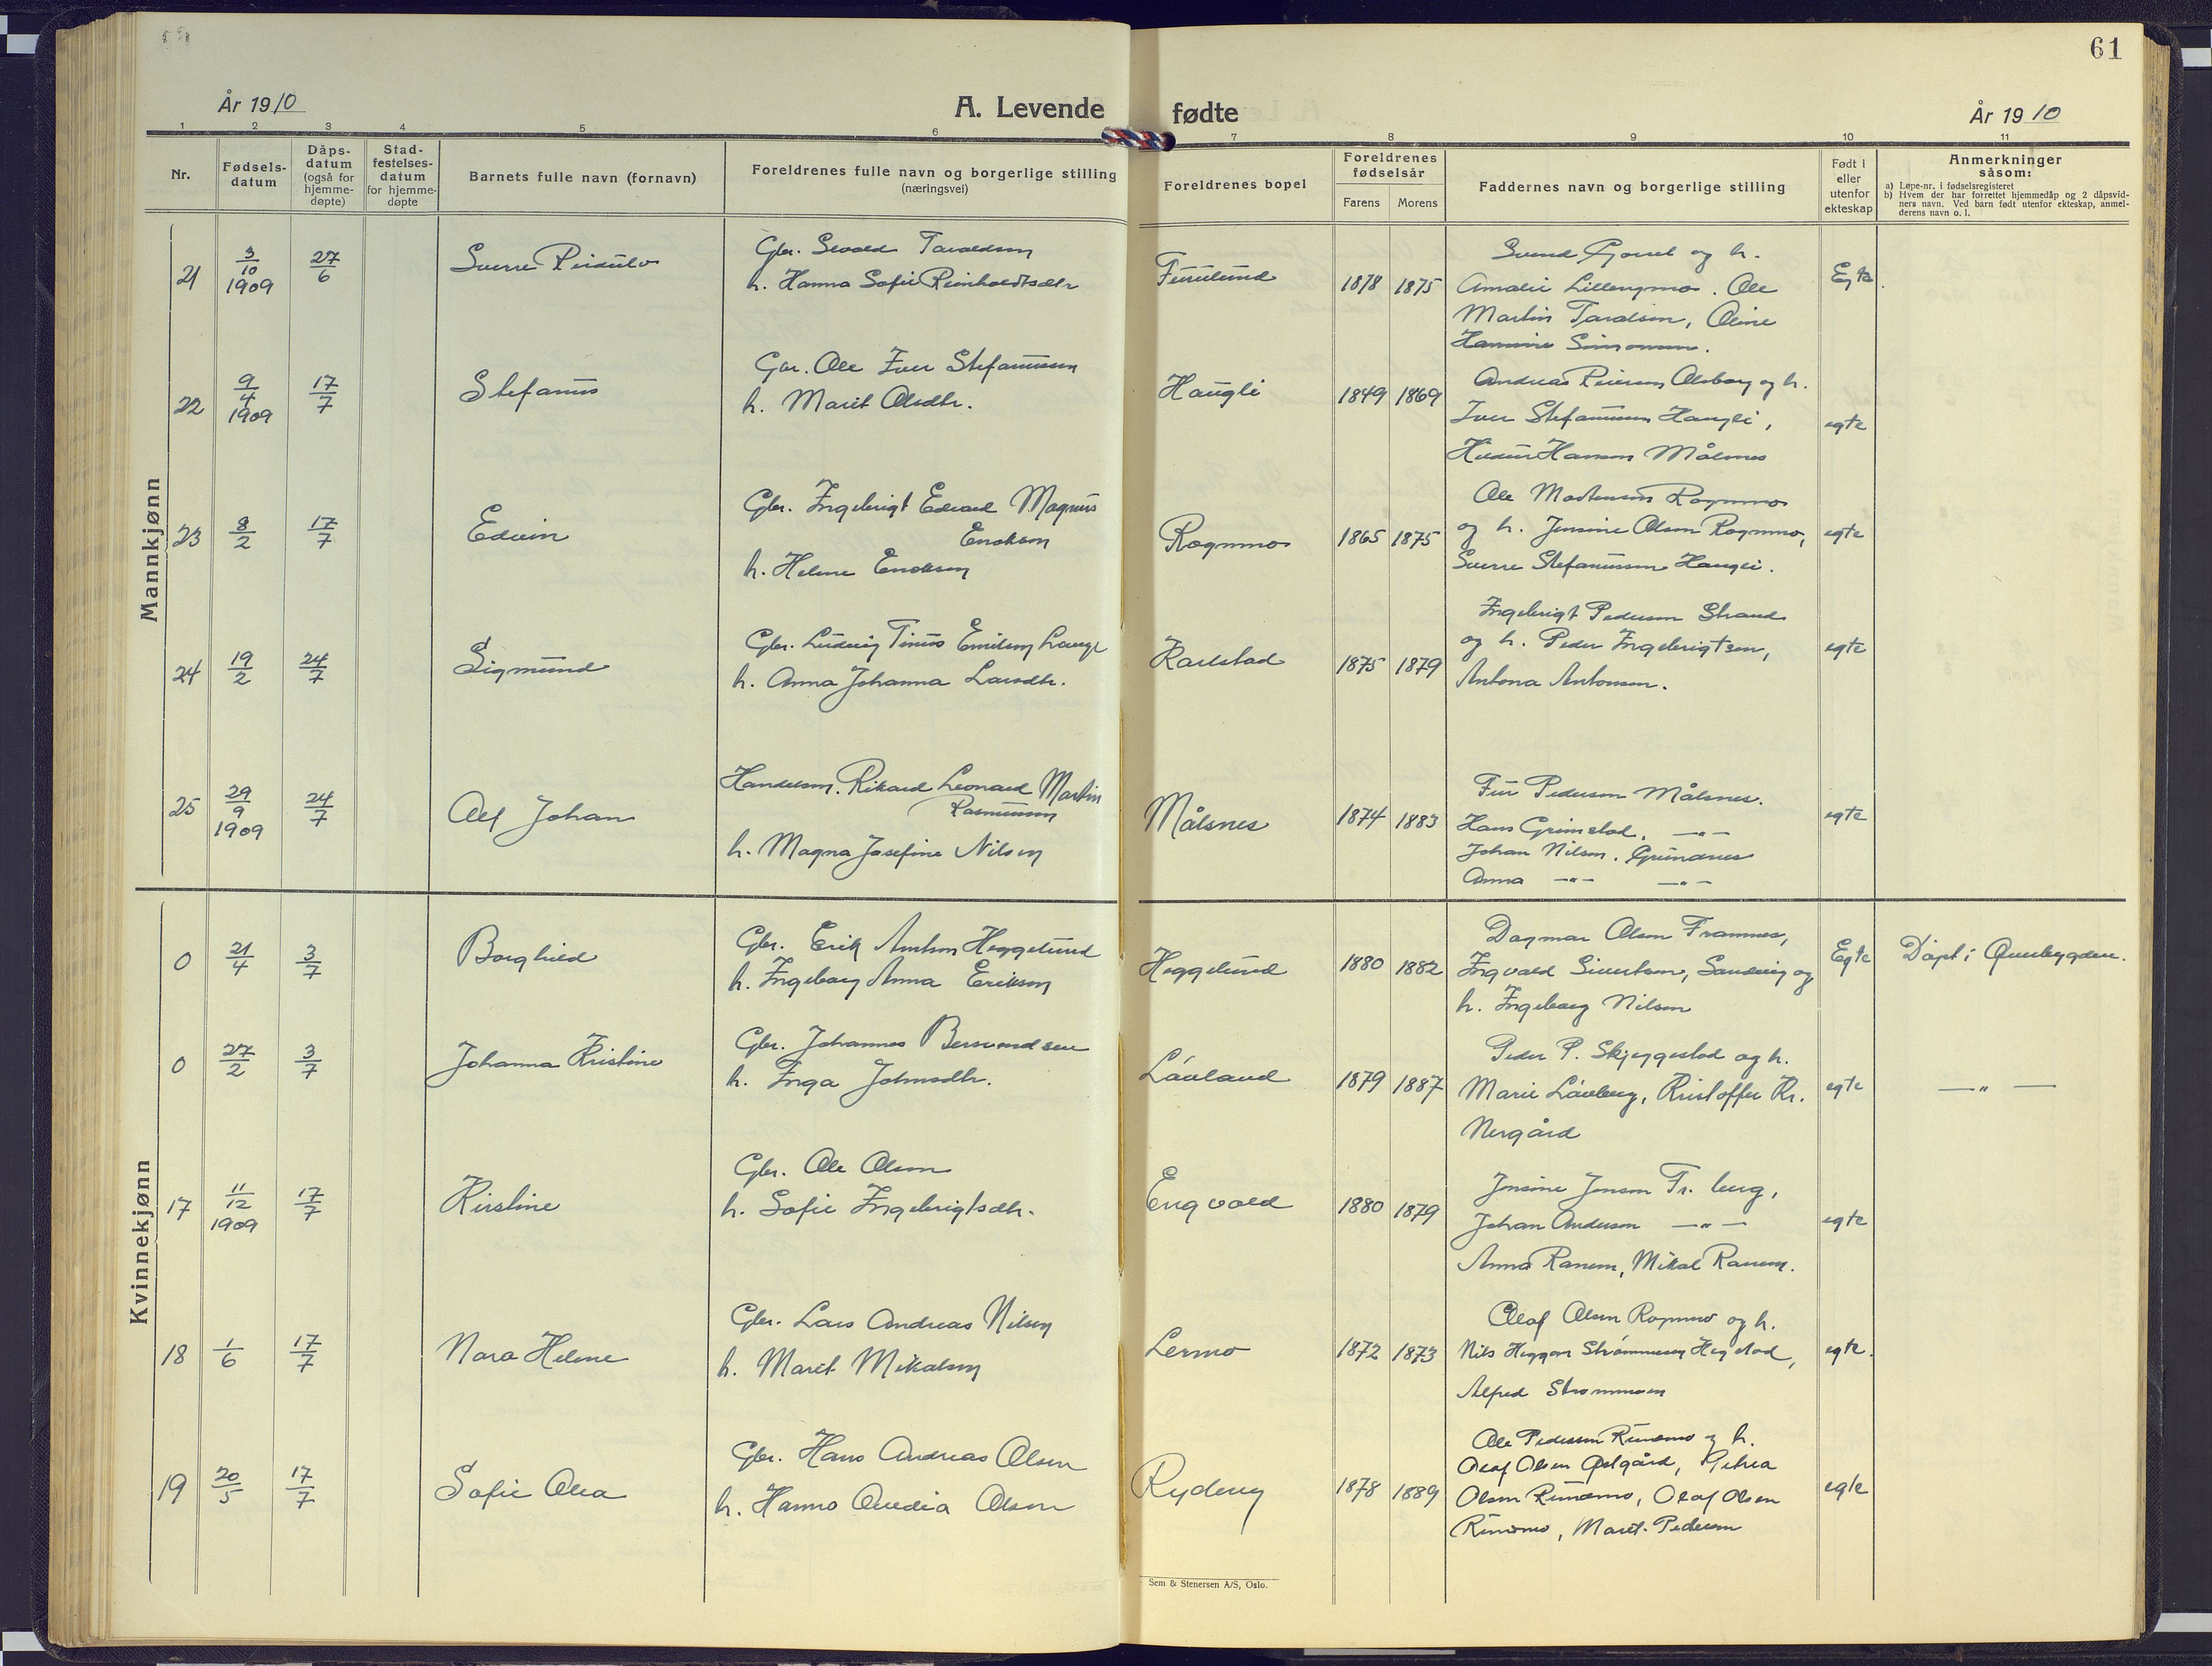 61
År 1910
A. Levende fødte
År 1910
1 2 3 4 5 6 7 8 9 10 11
Nr.
Fødsels-
datum
Dåps-
datum
(også for
hjemme-
døpte)
Stad-
festelses-
datum
for hjemme-
døpte
Barnets fulle navn (fornavn)
Foreldrenes fulle navn og borgerlige stilling
(næringsvei)
Foreldrenes bopel
Foreldrenes
fødselsår
Farens Morens
Faddernes navn og borgerlige stilling
Født i
eller
utenfor
ekteskap
Anmerkninger
såsom:
a) Løpe-nr. i fødselsregisteret
b) Hvem der har forrettet hjemmedåp og 2 dåpsvid-
ners navn. Ved barn født utenfor ekteskap, anmel-
derens navn o. l.
Mannkjønn
21
3/10
1909
27/6
Sverre
Gbr. Sevald Taraldsen
h. Hanna Sofie Reinholdtsdtr
Furulund
1878 1875
Svend og h.
Amalie Lillengmo. Ole
Martin Taralsen, Oline
Hansine Simonsen.
Egte
22
9/4
1909
17/7
Stefanus
Gbr. Ole Iver Stefanussen
h. Marit Olsdtr.
Haugli
1849 1869
Andreas Olsborg og h.
Iver Stefanussen Haugli,
Hansen Målsnes
egte
23
8/2
17/7
Edvin
Gbr. Ingebrigt Edvard Magnus
Enoksen
h. Helene Enoksen
Rognmo
1865 1875
Ole Mortensen Rognmo
og h. Jensine Olsen Rognmo,
Sverre Stefanussen Haugli.
egte
24
19/2
24/7
Sigmund
Gbr. Ludvig Tinus Emilsen Lange
h. Anna Johanna Larsdtr.
Karlstad
1875 1879
Ingebrigt Pedersen Strand
og h. Peder Ingebrigtsen,
Antona Antonsen.
egte
25
29/9
1909
24/7
Alf Johan
Handelsm. Rikard Leonard Martin
Rasmussen
h. Magna Josefine Nilsen
Målsnes
1874 1883
Pedersen Målsnes.
Hans Grimstad, —"—
Johan Nilsen. Grundnes
Anna —"— —"—
egte
Kvinnekjønn
0
21/4
3/7
Borghild
Gbr. Erik Antson Heggelund
h. Ingeborg Anna Eriksen
Heggelund
1880 1882
Dagmar Olsen Framnes,
Ingvald Sivertsen, Sandvig og
h. Ingeborg Nilsen
Egte
Døpt i Øverbygden.
0
27/2
3/7
Johanna Kristine
Gbr. Johannes Bersvendsen
h. Inga Johnsdtr.
Låvland
1879 1887
Peder P. Skjeggestad og h.
Marie Låvberg, Kristoffer Kr.
Nergård
egte
—"—
17
11/12
1909
17/7
Kirstine
Gbr. Ole Olsen
h. Sofie Ingebrigtsdtr.
Engvold
1880 1879
Jensine Jensen Fr. berg,
Johan Andersen —"—
Anna Ranum, Mikal Ranum.
egte
18
1/6
17/7
Nora Helene
Gbr. Lars Andreas Nilsen
h. Marit Mikalsen
Lermo
1872 1873
Olaf Olsen Rognmo og h.
Nils Heggen Strømmesen Hegstad,
Alfred Strømmesen
egte.
19
20/5
17/7
Sofie Olea
Gbr. Hans Andreas Olsen
h. Hanna Olsen
Rydeng
1878 1889
Ole Pedersen Rundmo og h.
Olaf Olsen Østgård, Petrea
Olsen Rundmo, Olaf Olsen
Rundmo, Marit Pedersen
egte
Sem & Stenersen A/S, Oslo.